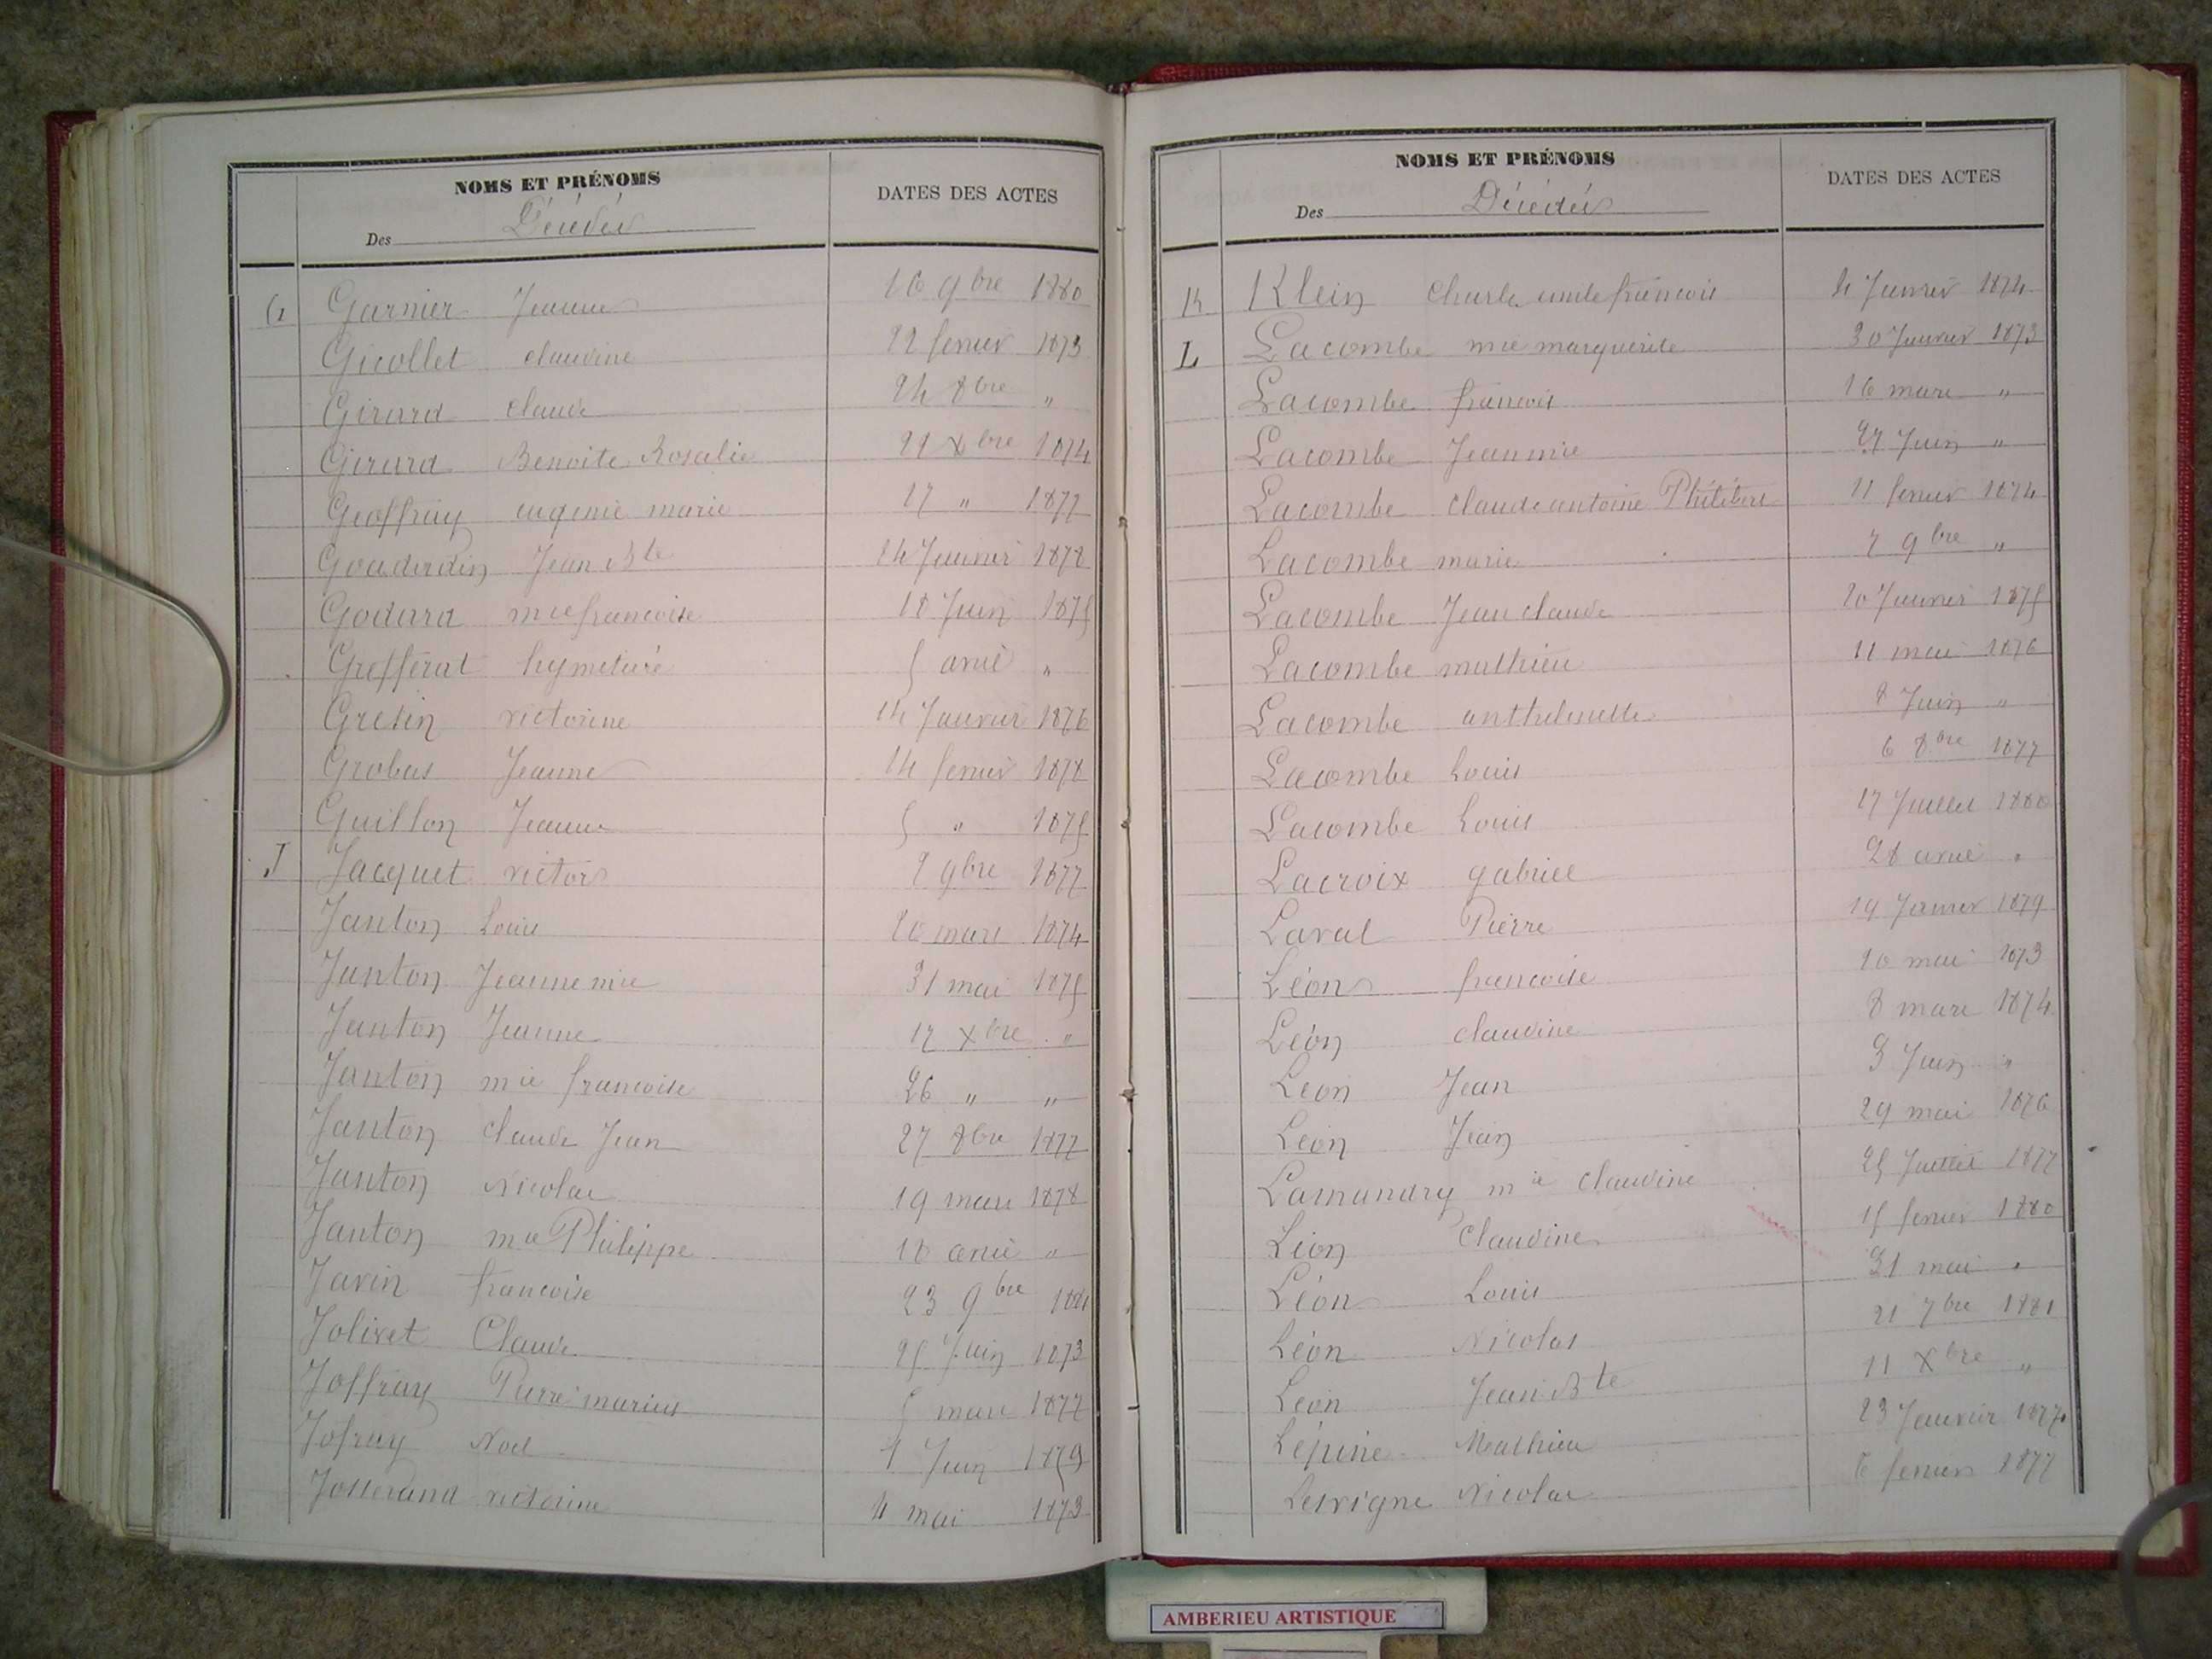 NOMS ET PRÉNOMS DATES DES ACTES
Des Décédés
G Garnier Jeanne 16 9bre 1880
Gicollet claudine 22 fevrier 1873
Girard claude 24 8bre "
Girard Benoite Rosalie 21 Xbre 1874
Geoffray eugenie marie 17 " 1877
Jean Bte 14 Janvier 1878
Godard mie francoise 18 Juin 1875
Grefferat 5 avril "
Gresin victorine 14 Janvier 1876
Grobas Jeanne 14 fevrier 1878
Guillon Jeanne 5 " 1875
J Jacquet victor 2 9bre 1877
Janton Louis 20 mars 1874
Janton Jeanne mie 31 mai 1875
Janton Jeanne 12 Xbre "
Janton mie francoise 26 " "
Janton claude Jean 27 8bre 1877
Janton Nicolas 19 mars 1878
Janton mie Philippe 18 avril "
Javin francoise 23 9bre 1881
Jolivet Claude 25 Juin 1873
Joffray Pierre marius 5 mars 1877
Jofray Noel 1 Juin 1879
Josserand victorine 4 mai 1873
NOMS ET PRÉNOMS DATES DES ACTES
Des Décédés
K Klein Charles emile francois 4 Janvier 1874
L Lacombe mie marguerite 30 Janvier 1873
Lacombe francois 16 mars "
Lacombe Jean mie 27 Juin "
Lacombe claude antoine Philibert 11 fevrier 1874
Lacombe marie 7 9bre "
Lacombe Jean claude 20 Janvier 1875
Lacombe mathieu 11 mai 1876
Lacombe anthelmette 8 Juin "
Lacombe Louis 6 8bre 1877
Lacombe Louis 17 Juillet 1880
Lacroix gabriel 28 avril "
Laval Pierre 19 Janvier 1879
Léon francoise 10 mai 1873
Léon claudine 8 mars 1874
Léon Jean 3 Juin "
Léon Jean 29 mai 1876
Lamandry mie claudine 25 Juillet 1877
Léon Claudine 15 fevrier 1880
Léon Louis 31 mai "
Léon Nicolas 21 7bre 1881
Léon Jean Bte 11 Xbre "
Lépine Mathieu 23 Janvier 1877
Lesvigne Nicolas 6 fevrier 1877
AMBERIEU ARTISTIQUE